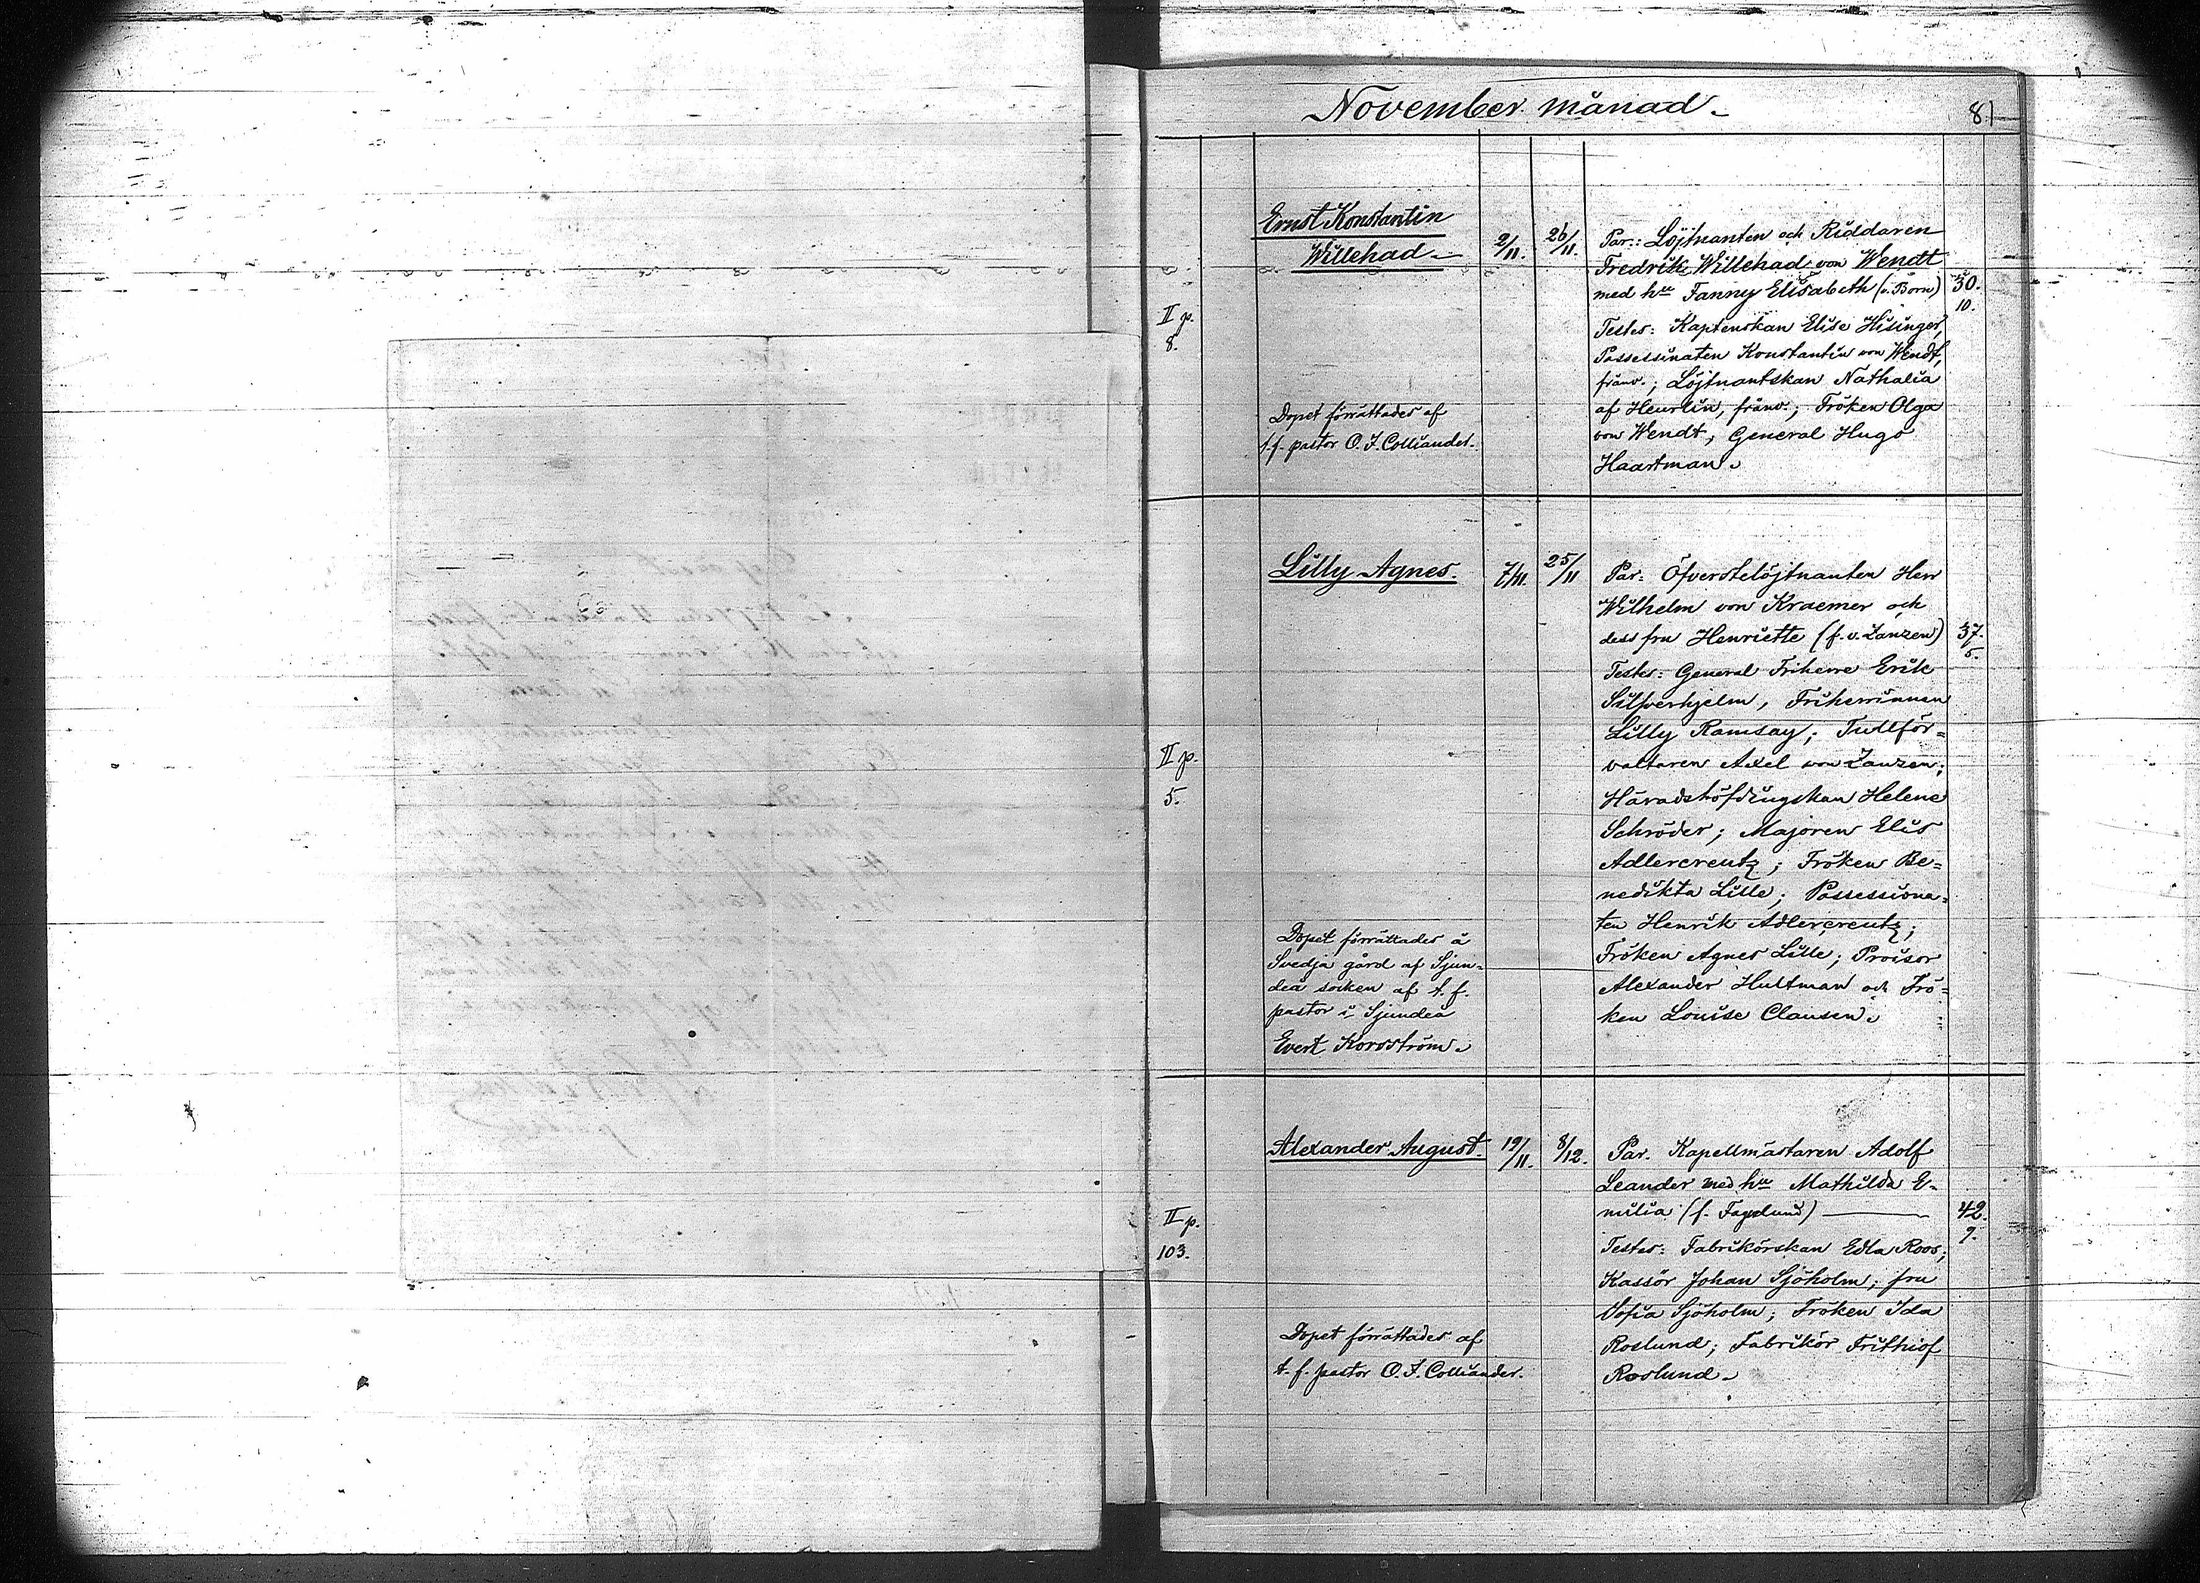 November månad.
81
Ernst Konstantin
Willehad.
2/11.
26/11.
II p.
8.
Dopet förrättades af
t.f. pastor O. I. Colliander.
Par.: Löjtnanten och Riddaren
Fredrik Willehad von Wendt
med hu Fanny Elisabeth (v. Born)
30.
10.
Testes: Kaptenskan Elise Hisinger,
Possessinaten Konstantin von Wendt,
frånv.; Löjtnantskan Nathalia
af Heurlin, frånv.; Fröken Olga
von Wendt, General Hugo
Haartman.
Lilly Agnes.
7/11.
25/11
II p.
5.
Dopet förrättades å
Svedja gård af Sjun=
deå socken af t. f.
pastor i Sjundeå
Evert Kordström.
Par: Öfverstelöjtnanten Herr
Wilhelm von Kraemer och
dess fru Henriette (f. v. Zanzen)
37.
5.
Testes: General Friherre Erik
Silfverhjelm, Friherrinnan
Lilly Ramsay; Tullför=
valtaren Axel von Zanzen;
Häradshöfdingskan Helene
Schröder; Majoren Elis
Adlercreutz; Fröken Be=
nedikta Lille; Possessiona=
ten Henrik Adlercreutz;
Fröken Agnes Lille; Provisor
Alexander Hultman och Frö=
ken Louise Clausen.
Alexander August.
19/11.
8/12.
II p.
103.
Dopet förrättades af
t. f. pastor O. I. Colliander.
Par. Kapellmästaren Adolf
Leander med hu Mathilda E=
milia (f. Fagerlund)
42.
9.
Testes: Fabrikörskan Edla Roos;
Kassör Johan Sjöholm; fru
Sofia Sjöholm; Fröken Ida
Roslund; Fabrikör Frithiof
Roslund.